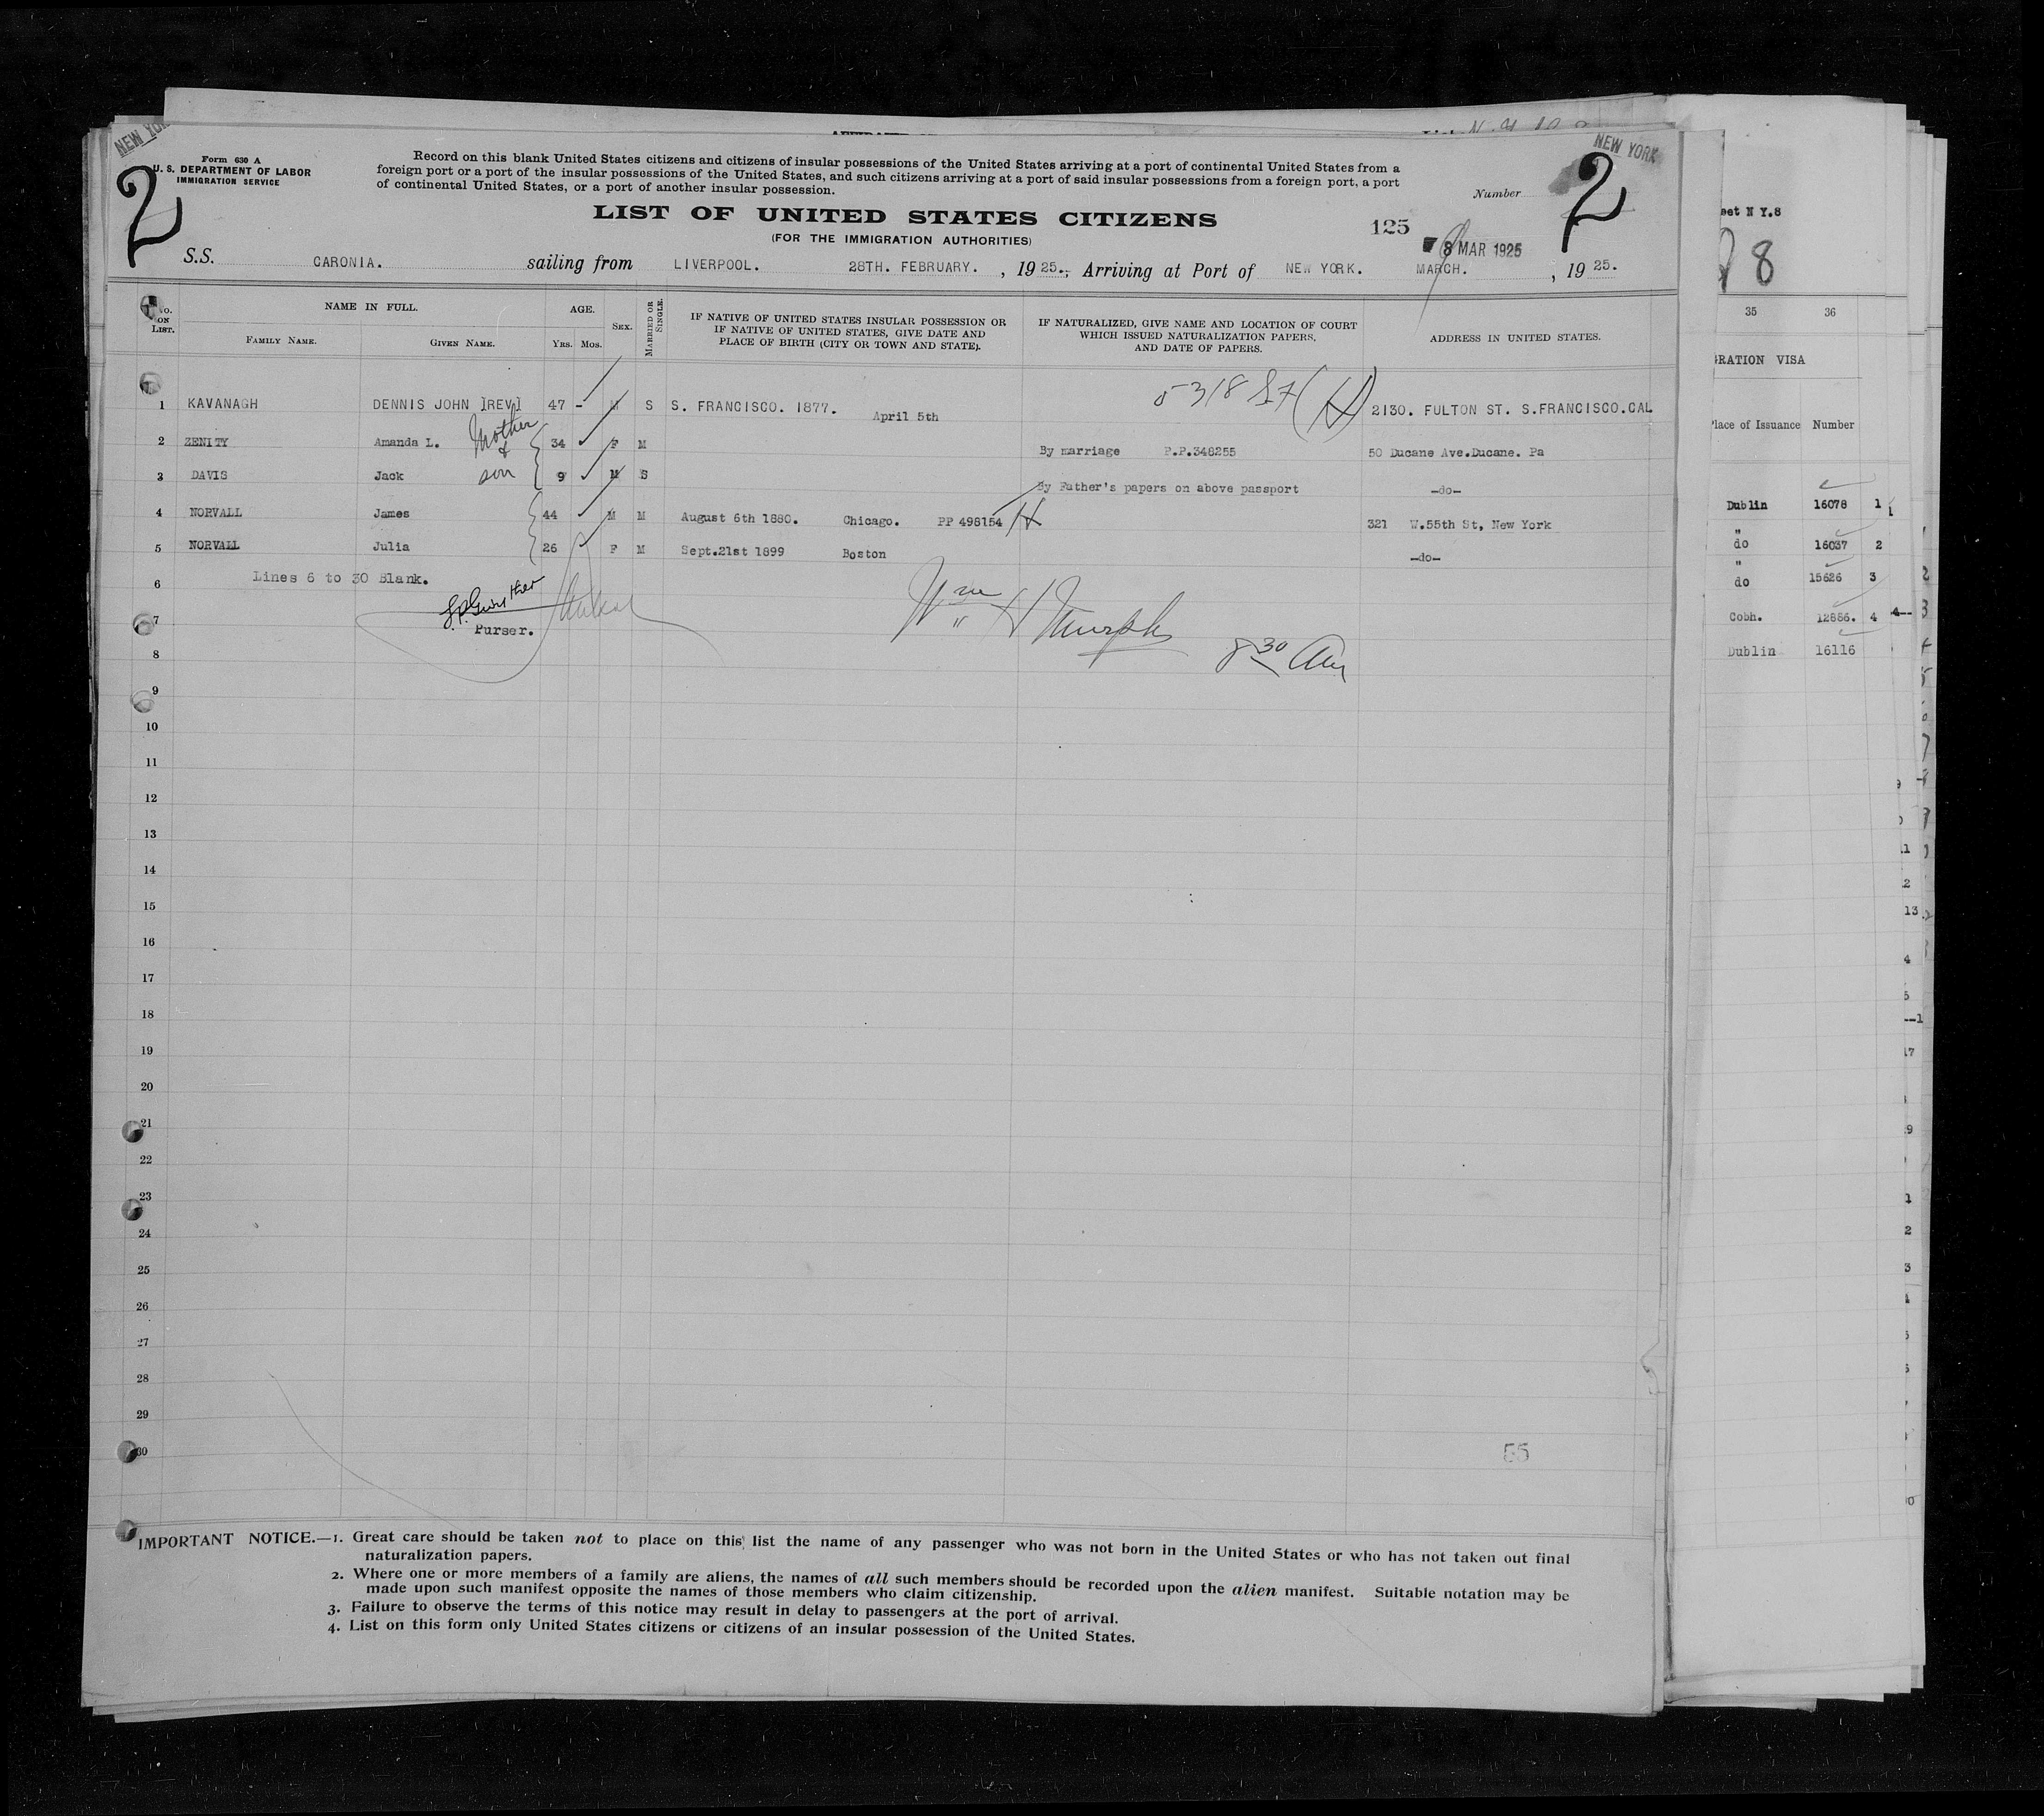 NEW YORK
2
Form 630 A
U. S. DEPARTMENT OF LABOR
IMMIGRATION SERVICE
Record on this blank United States citizens and citizens of insular possessions of the United States arriving at a port of continental United States from a
foreign port or a port of the insular possessions of the United States, and such citizens arriving at a port of said insular possessions from a foreign port, a port
of continental United States, or a port of another insular possession.
Number
NEW YORK
2
LIST OF UNITED STATES CITIZENS
(FOR THE IMMIGRATION AUTHORITIES)
125
8 MAR 1925
S.S. CARONIA. sailing from LIVERPOOL. 28TH. FEBRUARY. , 19 25., Arriving at Port of NEW YORK. MARCH. , 19 25.
No. ON LIST.
NAME IN FULL.
FAMILY NAME. GIVEN NAME.
AGE.
YRS. MOS.
SEX.
MARRIED OR SINGLE.
IF NATIVE OF UNITED STATES INSULAR POSSESSION OR
IF NATIVE OF UNITED STATES, GIVE DATE AND
PLACE OF BIRTH (CITY OR TOWN AND STATE).
IF NATURALIZED, GIVE NAME AND LOCATION OF COURT
WHICH ISSUED NATURALIZATION PAPERS,
AND DATE OF PAPERS.
ADDRESS IN UNITED STATES.
1 KAVANAGH DENNIS JOHN [REV] 47 - M S S. FRANCISCO. 1877. April 5th 2130. FULTON ST. S.FRANCISCO.CAL
2 ZENITY Amanda L. Mother & 34 F M By marriage P.P.348255 50 Ducane Ave.Ducane. Pa
3 DAVIS Jack son 9 M S By Father's papers on above passport -do-
4 NORVALL James 44 M M August 6th 1880. Chicago. PP 498154 H 321 W.55th St, New York
5 NORVALL Julia 26 F M Sept.21st 1899 Boston -do-
6 Lines 6 to 30 Blank.
7 Purser. Wm H Murphy
8 8 30 Am
9
10
11
12
13
14
15
16
17
18
19
20
21
22
23
24
25
26
27
28
29
30
55
IMPORTANT NOTICE.—1. Great care should be taken not to place on this list the name of any passenger who was not born in the United States or who has not taken out final
naturalization papers.
2. Where one or more members of a family are aliens, the names of all such members should be recorded upon the alien manifest. Suitable notation may be
made upon such manifest opposite the names of those members who claim citizenship.
3. Failure to observe the terms of this notice may result in delay to passengers at the port of arrival.
4. List on this form only United States citizens or citizens of an insular possession of the United States.
N Y.8
8
35 36
VISA
Place of Issuance Number
Dublin 16078 1
" do 16037 2
" do 15626 3
Cobh. 12886. 4
Dublin 16116